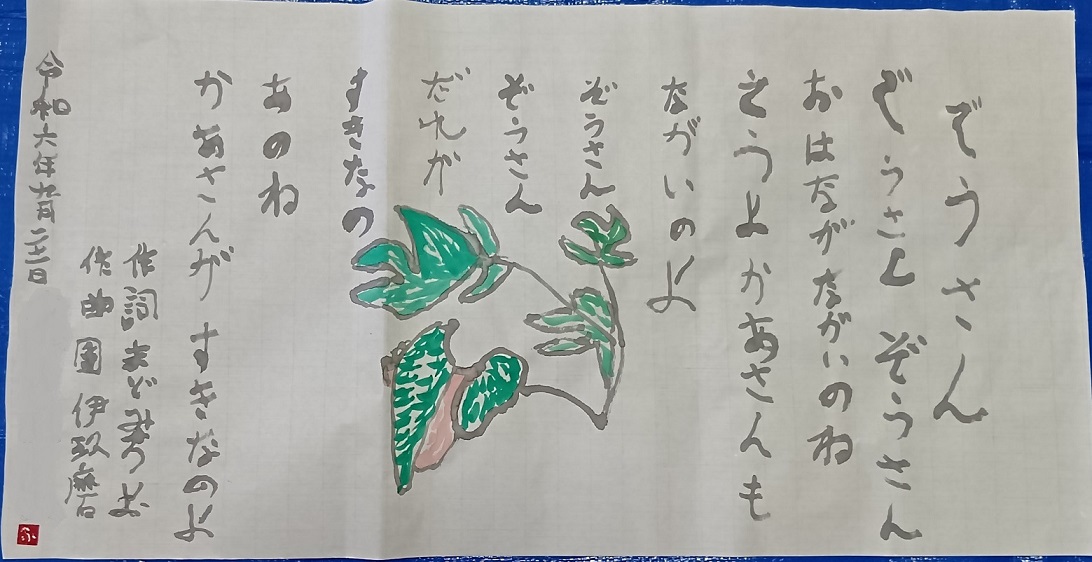 ぞうさん
ぞうさん ぞうさん
おはながながいのね
そうよ かあさんも
ながいのよ
ぞうさん
ぞうさん
だれが
すきなの
あのね
かあさんが すきなのよ
作詞 まど みちお
作曲 團 伊玖磨
令和六年